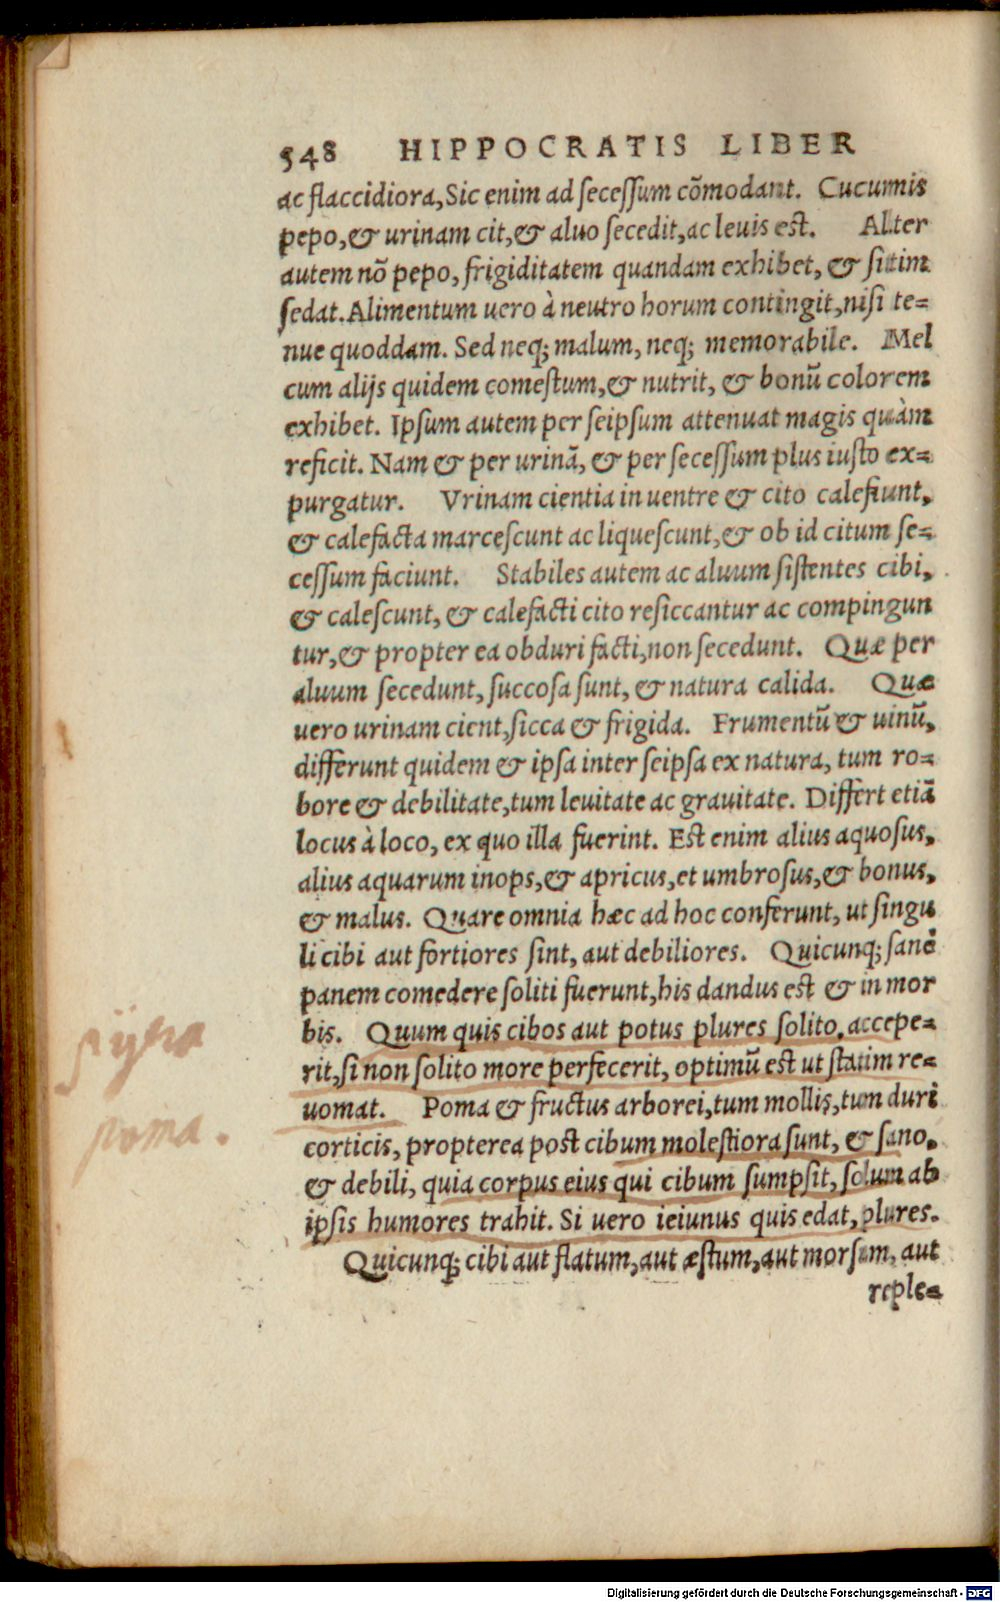 548 HIPPOCRATIS LIBER
ac flaccidiora, Sic enim ad ſeceſſum cõmodant. Cucumis
pepo, & urinam cit, & aluo ſecedit, ac leuis eſt. Alter
autem nõ pepo, frigiditatem quandam exhibet, & ſitim
ſedat. Alimentum uero à neutro horum contingit, niſi te=
nue quoddam. Sed neq; malum, neq; memorabile. Mel
cum alijs quidem comeſtum, & nutrit, & bonũ colorem
exhibet. Ipſum autem per ſeipſum attenuat magis quàm
reficit. Nam & per urinã, & per ſeceſſum plus iuſto ex=
purgatur. Vrinam cientia in uentre & cito calefiunt,
& calefacta marceſcunt ac liqueſcunt, & ob id citum ſe=
ceſſum faciunt. Stabiles autem ac aluum ſiſtentes cibi,
& caleſcunt, & calefacti cito reſiccantur ac compingun
tur, & propter ea obduri facti, non ſecedunt. Quæ per
aluum ſecedunt, ſuccoſa ſunt, & natura calida. Quæ
uero urinam cient, ſicca & frigida. Frumentũ & uinũ,
differunt quidem & ipſa inter ſeipſa ex natura, tum ro=
bore & debilitate, tum leuitate ac grauitate. Differt etiã
locus à loco, ex quo illa fuerint. Eſt enim alius aquoſus,
alius aquarum inops, & apricus, et umbroſus, & bonus,
& malus. Quare omnia hæc ad hoc conferunt, ut ſingu
li cibi aut fortiores ſint, aut debiliores. Quicunq; ſanè
panem comedere ſoliti fuerunt, his dandus eſt & in mor
bis. Quum quis cibos aut potus plures ſolito, accepe=
rit, ſi non ſolito more perfecerit, optimũ eſt ut ſtatim re=
uomat. Poma & fructus arborei, tum mollis, tum duri
corticis, propterea poſt cibum moleſtiora ſunt, & ſano,
& debili, quia corpus eius qui cibum ſumpſit, ſolum ab
ipſis humores trahit. Si uero ieiunus quis edat, plures.
Quicunq; cibi aut flatum, aut æſtum, aut morſum, aut
reple=
poma.
Digitalisierung gefördert durch die Deutsche Forschungsgemeinschaft - DFG